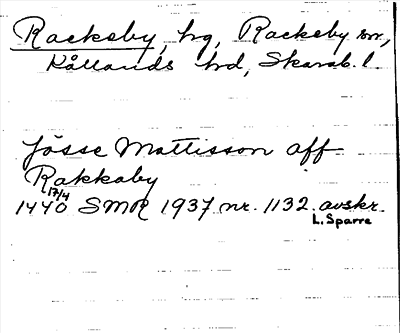 Rackeby, hg, Rackeby sn,
Kållands hd, Skarab. l.
Jösse Mattisson aff
Rakkaby
17/4
1440 SMR 1937 nr. 1132 avskr.
L. Sparre